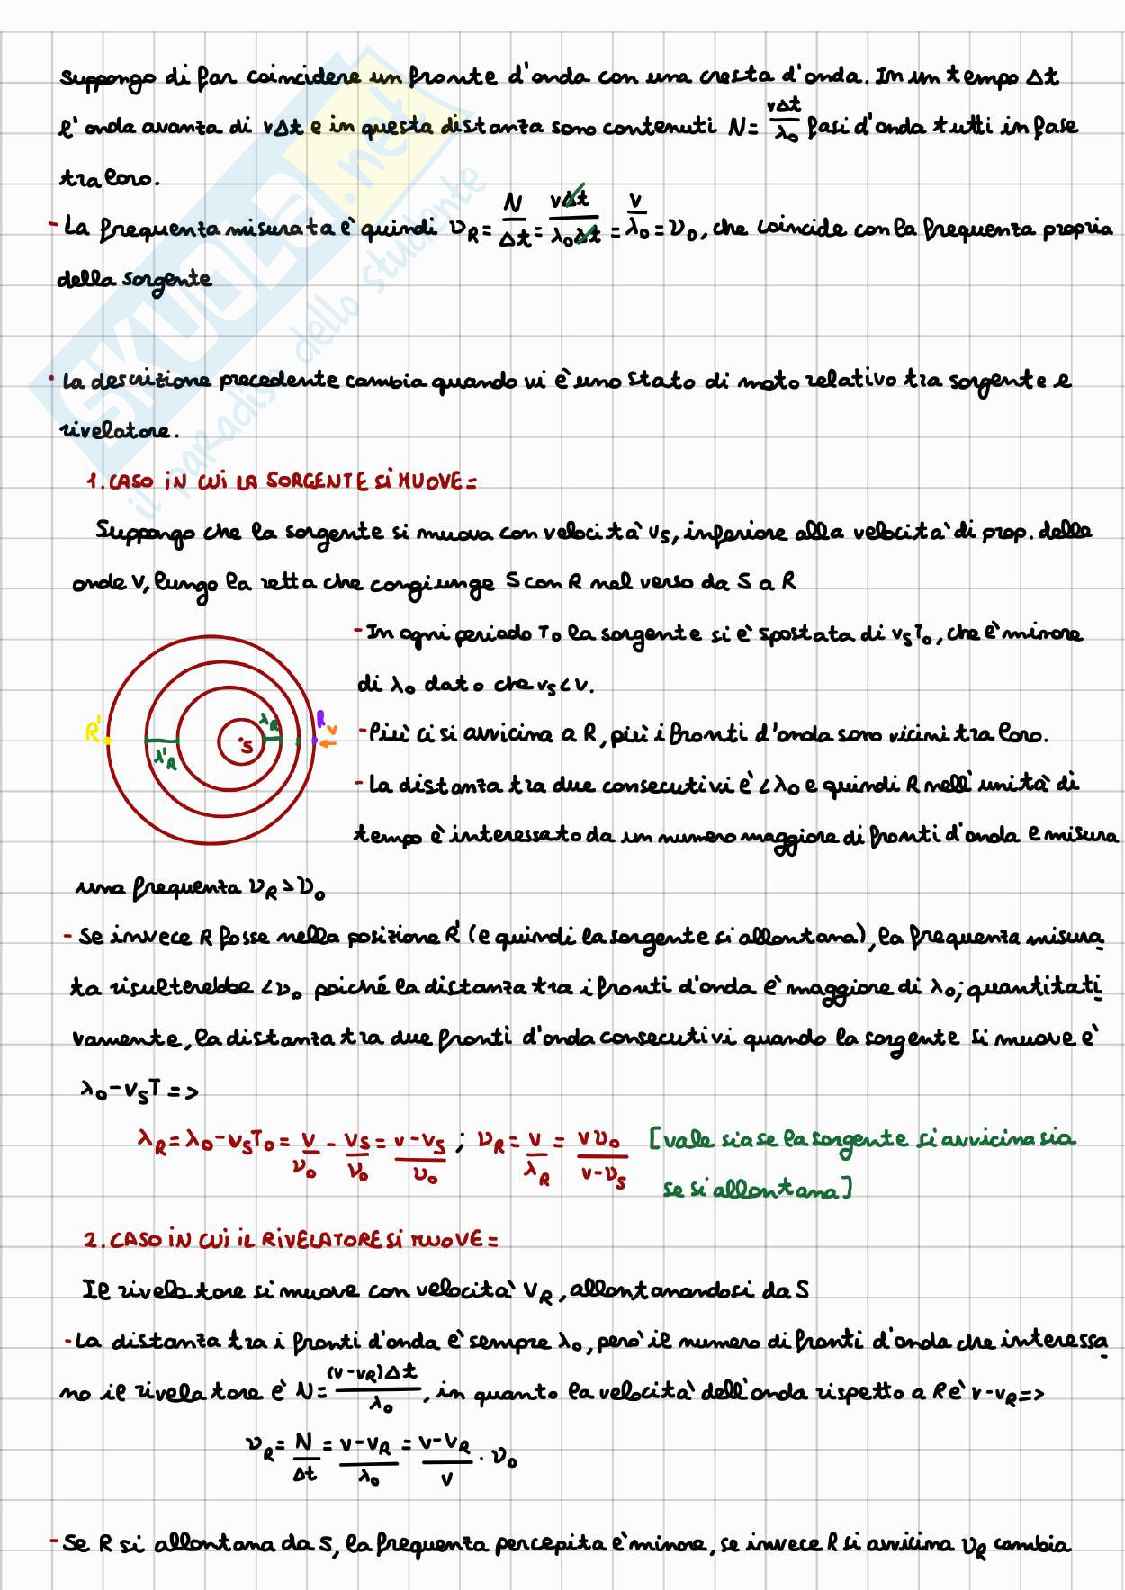 Suppongo di far coincidere un fronte d'onda con una cresta d'onda. In un tempo Δt
l'onda avanza di vΔt e in questa distanza sono contenuti N = vΔt/λ₀ fasi d'onda tutti in fase
tra loro.
- La frequenza misurata è quindi ν_R = N/Δt = vΔt/λ₀Δt = v/λ₀ = ν₀, che coincide con la frequenza propria
della sorgente
• La descrizione precedente cambia quando vi è uno stato di moto relativo tra sorgente e
rivelatore.
1. CASO IN CUI LA SORGENTE SI MUOVE =
Suppongo che la sorgente si muova con velocità v_S, inferiore alla velocità di prop. delle
onde v, lungo la retta che congiunge S con R nel verso da S a R
- In ogni periodo T₀ la sorgente si è spostata di v_S T₀, che è minore
di λ₀ dato che v_S < v.
- Più ci si avvicina a R, più i fronti d'onda sono vicini tra loro.
- La distanza tra due consecutivi è < λ₀ e quindi R nell'unità di
tempo è interessato da un numero maggiore di fronti d'onda e misura
R' λ'_R S λ_R R v
una frequenza ν_R > ν₀
- Se invece R fosse nella posizione R' (e quindi la sorgente si allontana), la frequenza misura
ta risulterebbe < ν₀ poiché la distanza tra i fronti d'onda è maggiore di λ₀; quantitati
vamente, la distanza tra due fronti d'onda consecutivi quando la sorgente si muove è
λ₀ - v_S T =>
λ_R = λ₀ - v_S T₀ = v/ν₀ - v_S/ν₀ = v - v_S/ν₀ ; ν_R = v/λ_R = vν₀/v - v_S [vale sia se la sorgente si avvicina sia
se si allontana]
2. CASO IN CUI IL RIVELATORE SI MUOVE =
Il rivelatore si muove con velocità v_R, allontanandosi da S
- La distanza tra i fronti d'onda è sempre λ₀, però il numero di fronti d'onda che interessa
no il rivelatore è N = (v - v_R)Δt/λ₀, in quanto la velocità dell'onda rispetto a R è v - v_R =>
ν_R = N/Δt = v - v_R/λ₀ = v - v_R/v · ν₀
- Se R si allontana da S, la frequenza percepita è minore, se invece R si avvicina ν_R cambia
SKUOLA.net
il paradiso dello studente